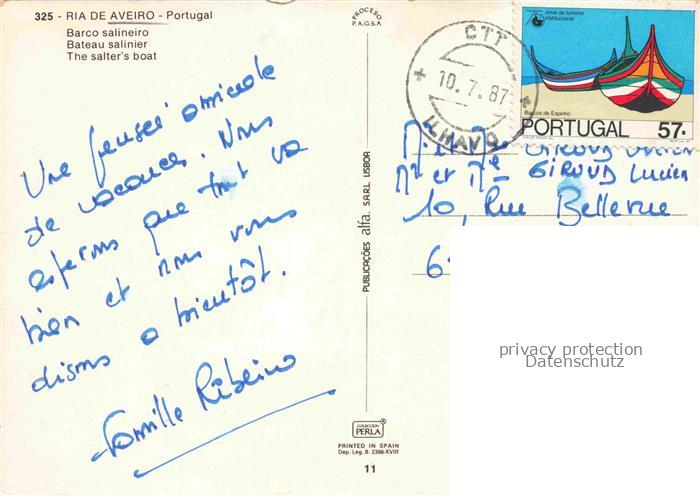 325 - RIA DE AVEIRO - Portugal
Barco salineiro
Bateau salinier
The salter's boat
Une pensée amicale
de vacances. Nous
esperons que tout va
bien et nous vous
disons a bientôt.
Famille Ribeiro
PROCESO
P.A.G.S.A.
PUBLICAÇÕES alfa. S.A.R.L. LISBOR
COLECCION
PERLA
PRINTED IN SPAIN
Dep. Leg. B. 2398-XVIII
11
CTT
10.7.87
ILHAVO
75 anos de turismo
institucional
Barcos de Espinho
PORTUGAL 57.
Mr et Mme GIROUD Lucien
10, Rue Bellevue
6
privacy protection
Datenschutz